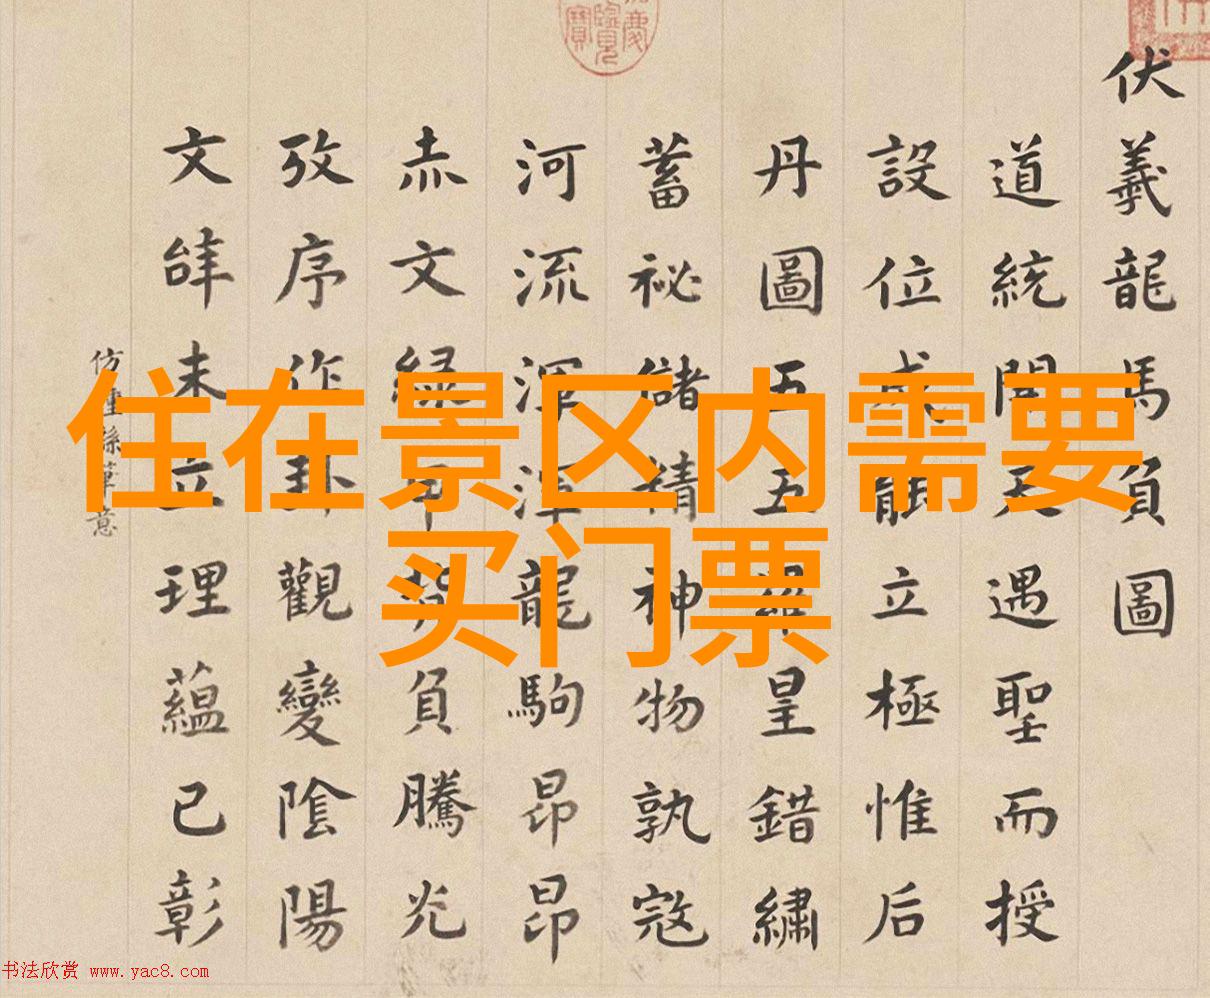 伏羲龍馬負圖
道統開天遇聖而授
設位成能立極惟后
丹圖五五羅皇錯繡
蓄祕儲精神物孰寇
河流渾渾龍駒昂昂
赤文綠甲背負騰光
攷序作卦觀變陰陽
文辭未立理蘊已彰
仿鍾繇筆意
住在景区内需要
买门票
书法欣赏 www.yac8.com